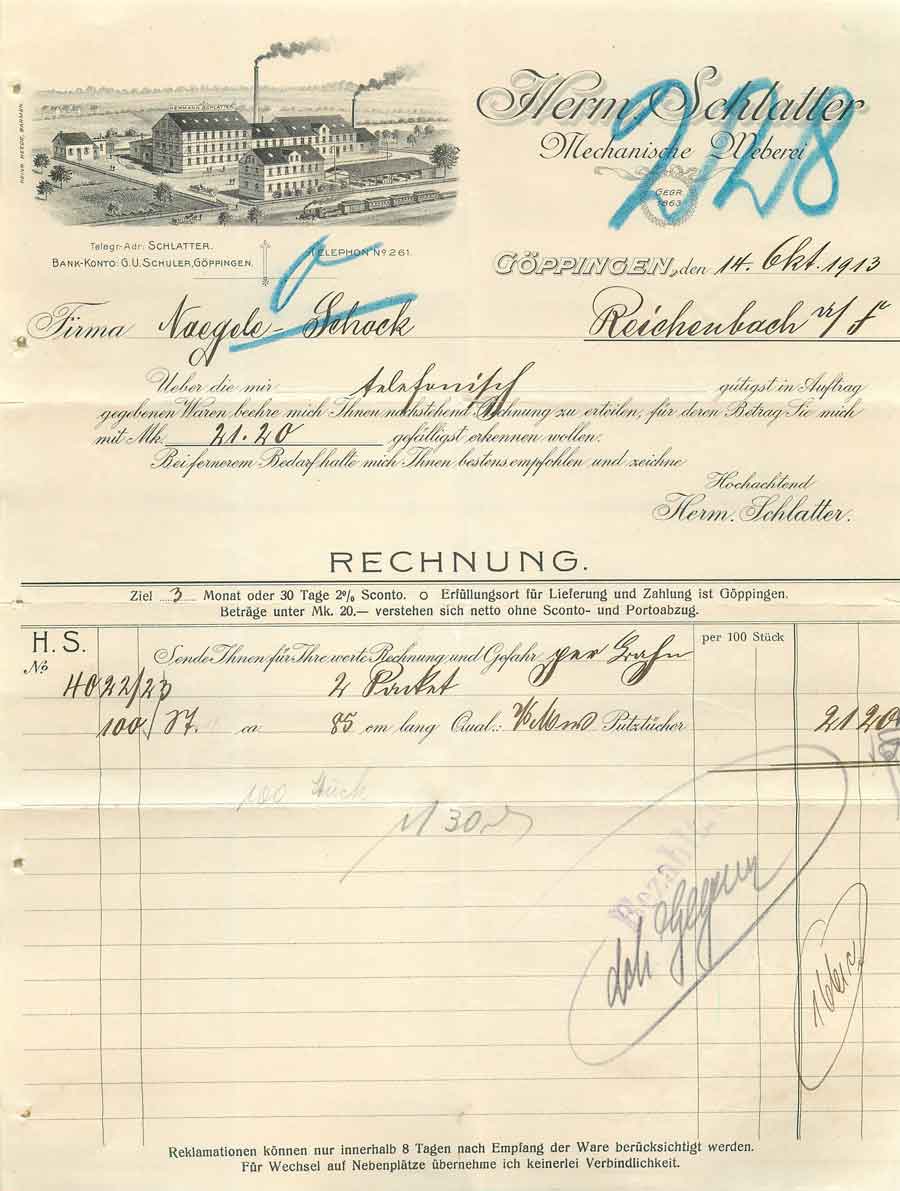 HERMANN SCHLATTER
HEINR. HEEDE, BARMEN
Herm. Schlatter
Mechanische Weberei
228
GEGR.
1863
Telegr-Adr: SCHLATTER.
TELEPHON No 261.
BANK-KONTO: G.U. SCHULER, GÖPPINGEN.
GÖPPINGEN, den 14. Okt. 1913
Firma Naegele-Schock Reichenbach a/F
Ueber die mir telefonisch gütigst in Auftrag
gegebenen Waren beehre mich Ihnen nachstehend Rechnung zu erteilen, für deren Betrag Sie mich
mit Mk. 21.20 gefälligst erkennen wollen.
Bei fernerem Bedarf halte mich Ihnen bestens empfohlen und zeichne
Hochachtend
Herm. Schlatter.
RECHNUNG.
Ziel 3 Monat oder 30 Tage 2% Sconto. o Erfüllungsort für Lieferung und Zahlung ist Göppingen.
Beträge unter Mk. 20.— verstehen sich netto ohne Sconto- und Portoabzug.
H. S.
No
per 100 Stück
Sende Ihnen für Ihre werte Rechnung und Gefahr per Bahn
4022/23 2 Packet
100 St. ca 85 cm lang Qual.: Putztücher 21 20
100 Stück
Bezahlt
Reklamationen können nur innerhalb 8 Tagen nach Empfang der Ware berücksichtigt werden.
Für Wechsel auf Nebenplätze übernehme ich keinerlei Verbindlichkeit.